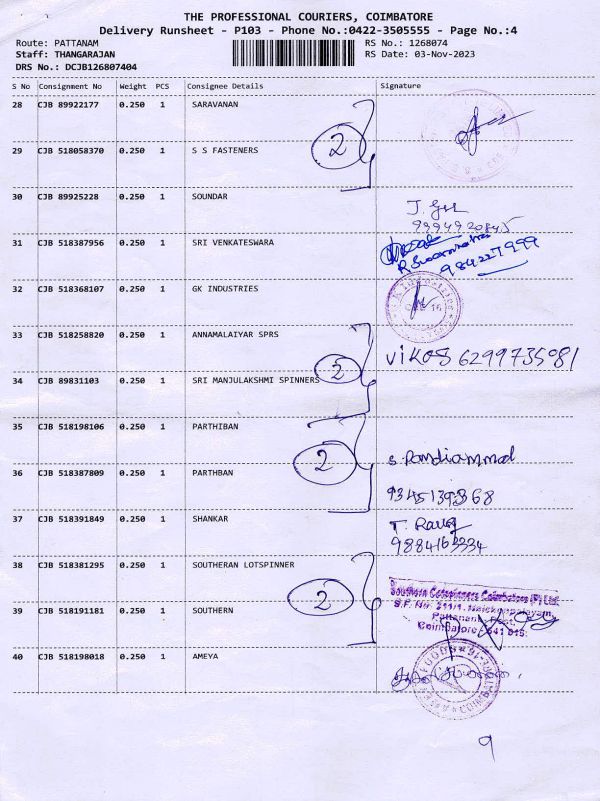 THE PROFESSIONAL COURIERS, COIMBATORE
Delivery Runsheet - P103 - Phone No.:0422-3505555 - Page No.:4
Route: PATTANAM RS No.: 1268074
Staff: THANGARAJAN RS Date: 03-Nov-2023
DRS No.: DCJB126807404
S No Consignment No Weight PCS Consignee Details Signature
28 CJB 89922177 0.250 1 SARAVANAN
2
29 CJB 518058370 0.250 1 S S FASTENERS
30 CJB 89925228 0.250 1 SOUNDAR
9994920845
31 CJB 518387956 0.250 1 SRI VENKATESWARA
9842271999
32 CJB 518368107 0.250 1 GK INDUSTRIES
33 CJB 518258820 0.250 1 ANNAMALAIYAR SPRS
2 vikos 6299735981
34 CJB 89831103 0.250 1 SRI MANJULAKSHMI SPINNERS
35 CJB 518198106 0.250 1 PARTHIBAN
2 S. Pandiammal
36 CJB 518387809 0.250 1 PARTHBAN
9345139368
37 CJB 518391849 0.250 1 SHANKAR
9884163334
38 CJB 518381295 0.250 1 SOUTHERAN LOTSPINNER
2
39 CJB 518191181 0.250 1 SOUTHERN
Coimbatore - 641 016.
40 CJB 518198018 0.250 1 AMEYA
9